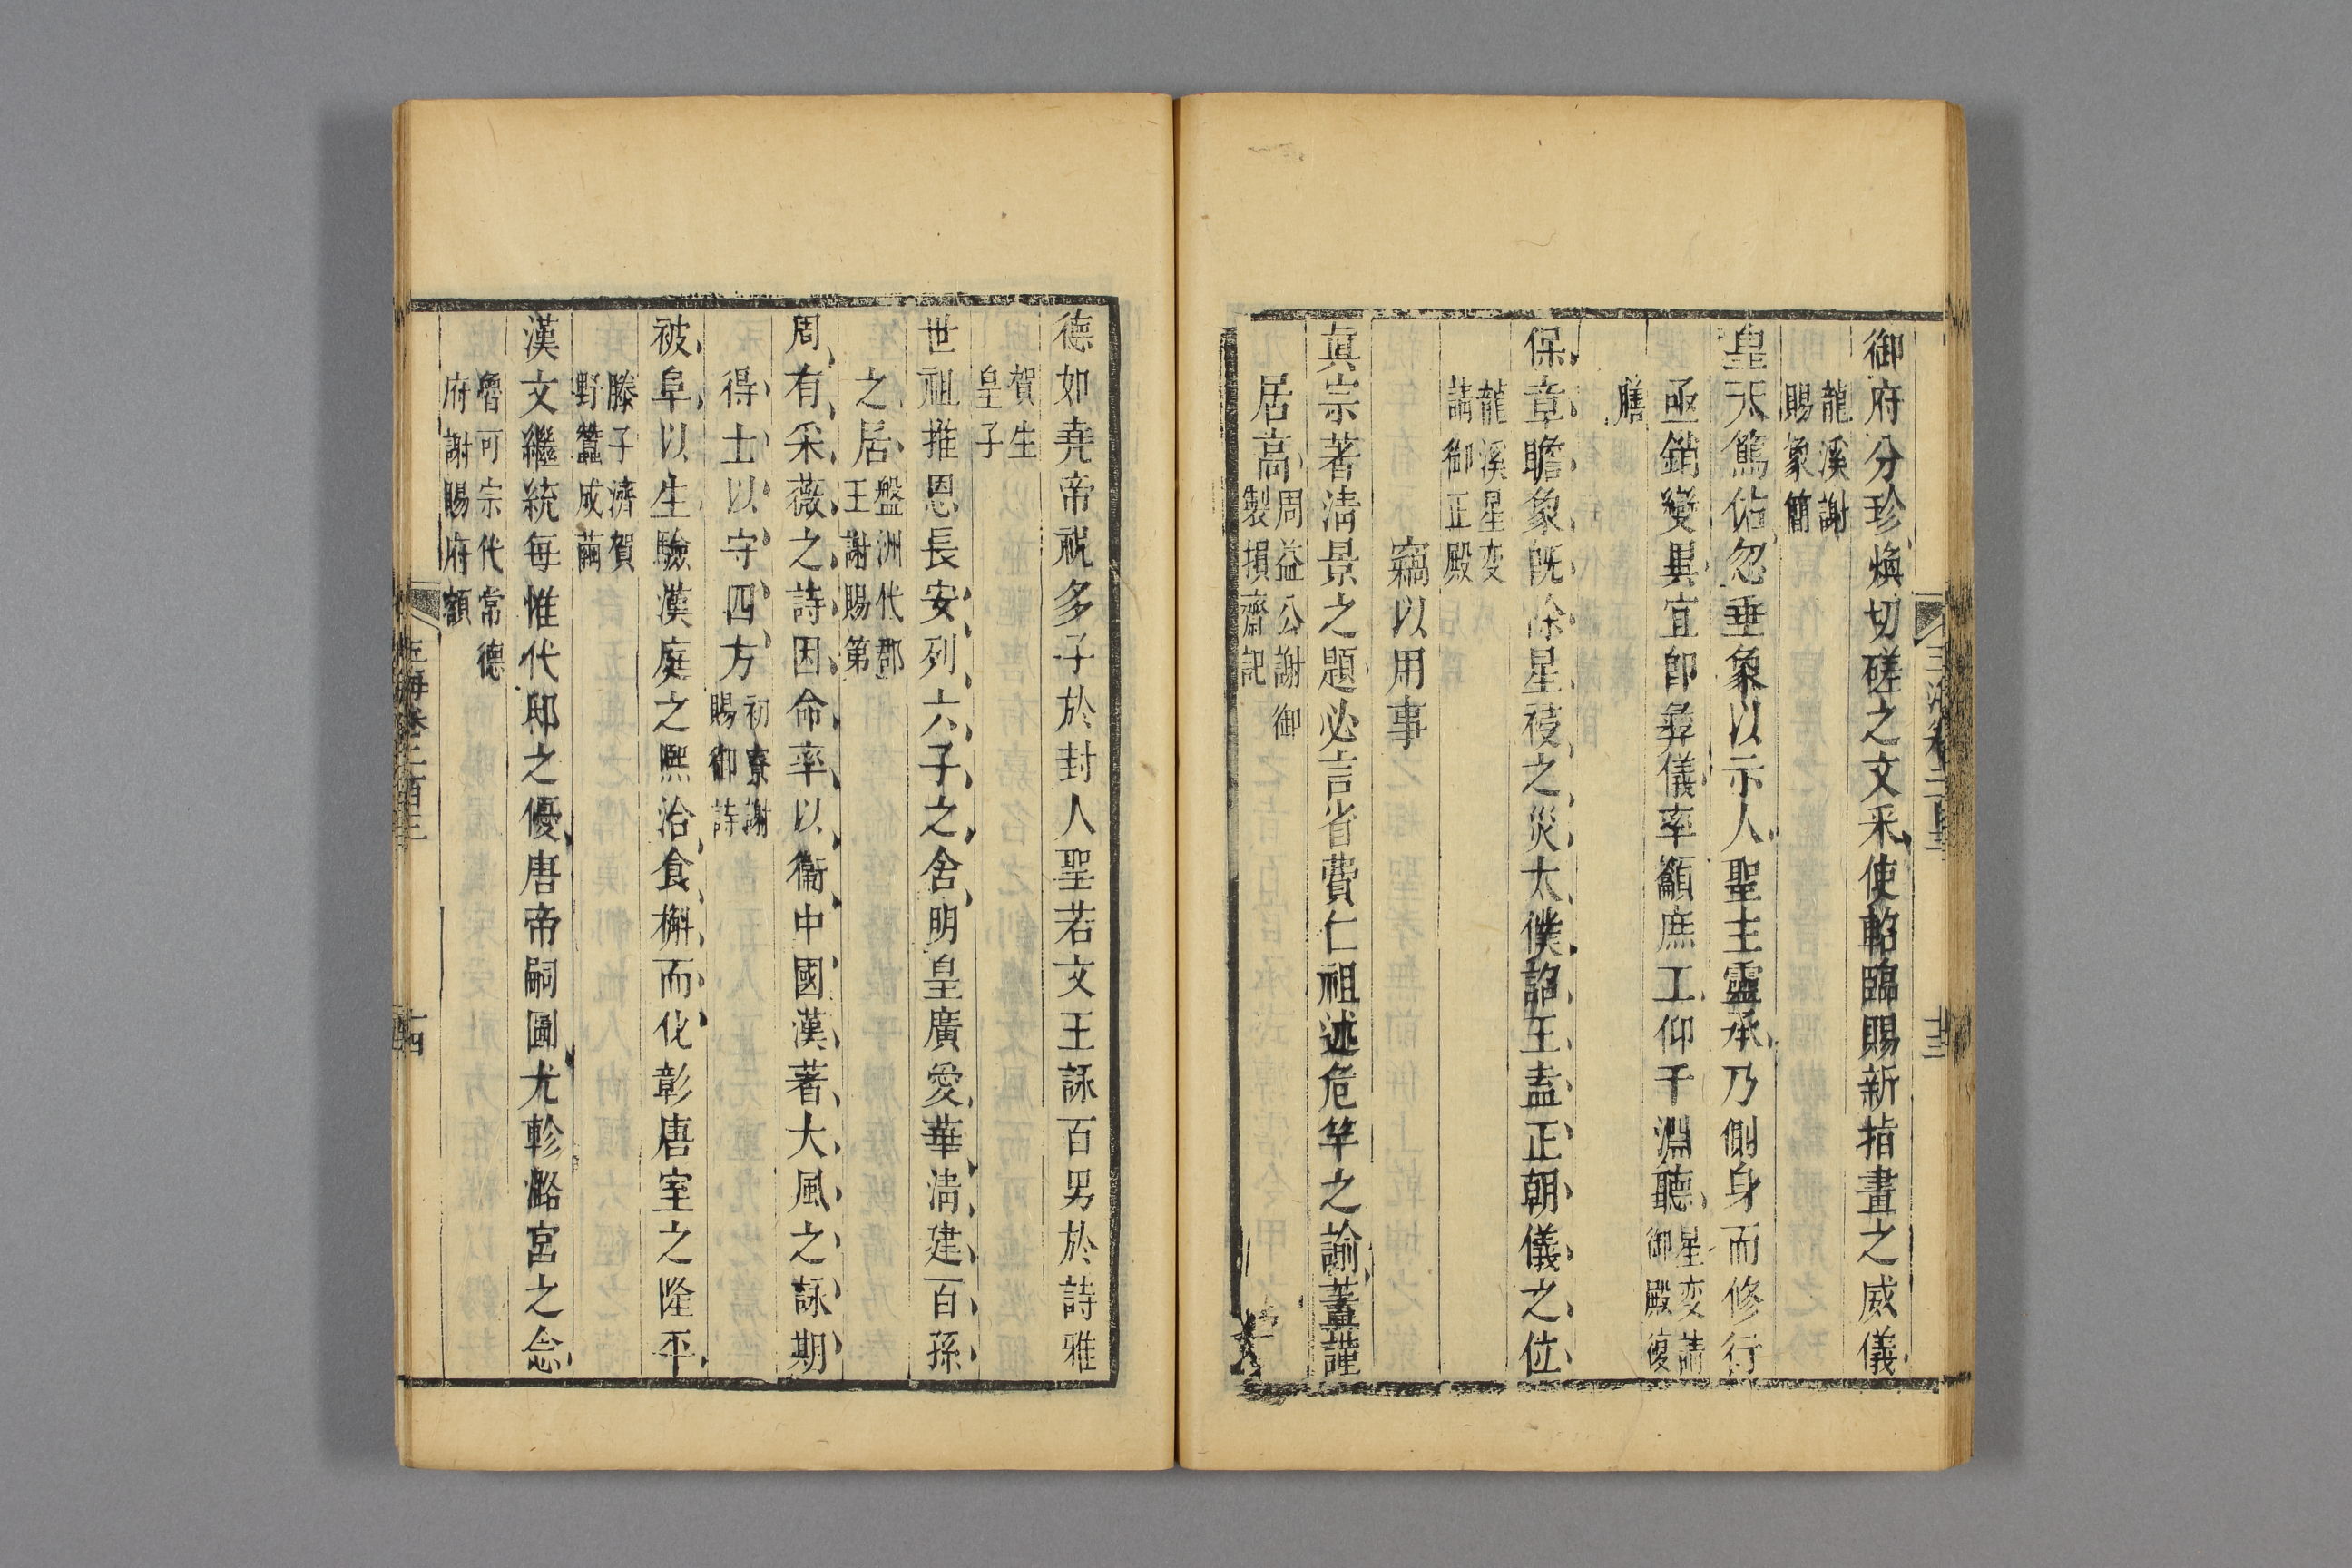 御府分珍煥切磋之文采使軺臨賜新指畫之威儀
龍溪謝
賜象簡
皇天篤佑忽垂象以示人聖主靈承乃側身而修行
亟銷變異宜卽彝儀率籲庶工仰干淵聽星变請
御殿復
膳
保章瞻象旣除星祲之災太僕詔王盍正朝儀之位
龍溪星变
請御正殿
竊以用事
真宗著淸景之題必言省費仁祖述危竿之諭蓋謹
居高周益公謝御
製損齋記
德如堯帝祝多子於封人聖若文王詠百男於詩雅
賀生
皇子
世祖推恩長安列六子之舍明皇廣愛華淸建百孫
之居盤洲代郡
王謝賜第
周有采薇之詩因命率以衞中國漢著大風之詠期
得士以守四方初寮謝
賜御詩
被阜以生驗漢庭之熙洽食槲而化彰唐室之隆平
滕子濟賀
野蠶成繭
漢文繼統每惟代邸之優唐帝嗣圖尤軫潞宮之念
魯可宗代常德
府謝賜府額
玉海卷二百三